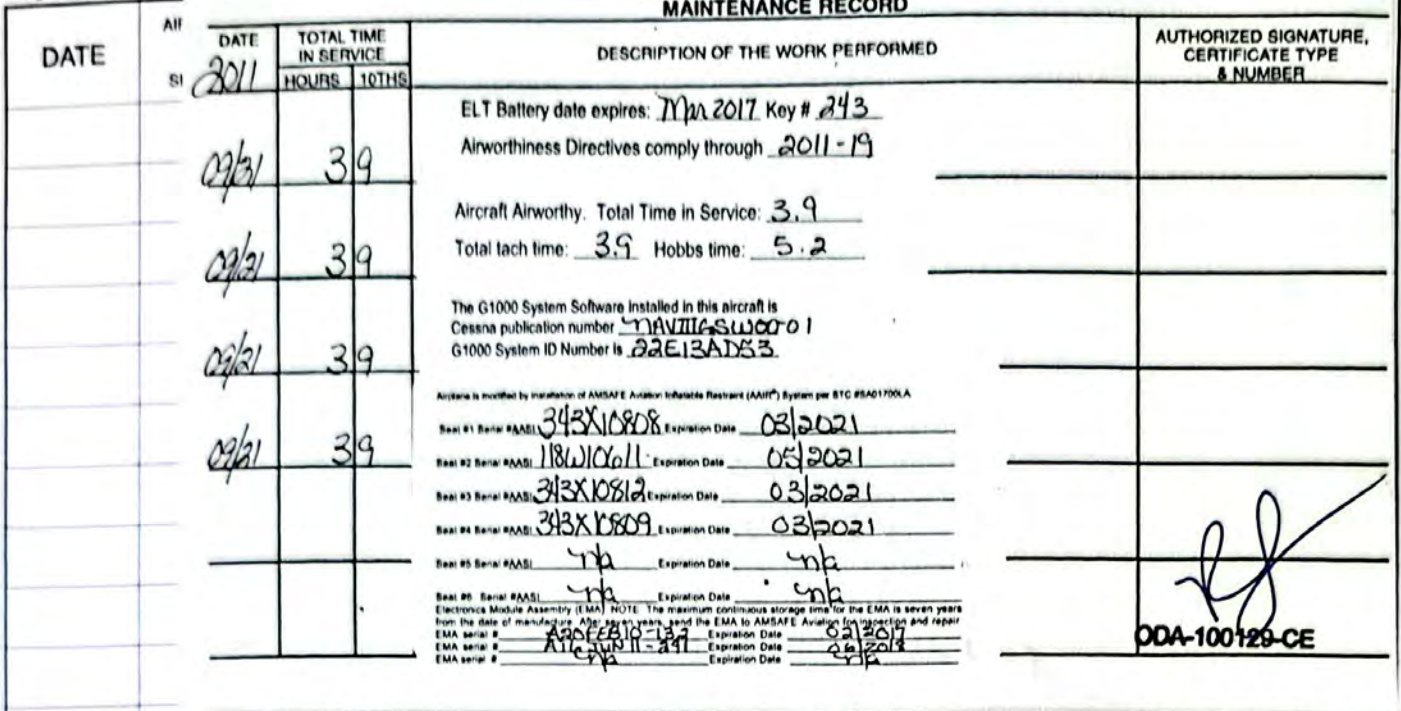 MAINTENANCE RECORD
DATE
All
SI
DATE
2011
TOTAL TIME
IN SERVICE
HOURS 10THS
DESCRIPTION OF THE WORK PERFORMED
AUTHORIZED SIGNATURE,
CERTIFICATE TYPE
& NUMBER
ELT Battery date expires: Mar 2017 Key # 243
Airworthiness Directives comply through 2011-19
09/21 3 9
Aircraft Airworthy. Total Time in Service: 3.9
Total tach time: 3.9 Hobbs time: 5.2
09/21 3 9
The G1000 System Software installed in this aircraft is
Cessna publication number
G1000 System ID Number is 22E13AD53
09/21 3 9
Airplane is modified by installation of AMSAFE Aviation Inflatable Restraint (AAIR®) System per STC #SA01700LA
Seat #1 Serial #AASI 343X10808 Expiration Date 03/2021
09/21 3 9
Seat #2 Serial #AASI 118W10611 Expiration Date 05/2021
Seat #3 Serial #AASI 343X10812 Expiration Date 03/2021
Seat #4 Serial #AASI 343X10809 Expiration Date 03/2021
Seat #5 Serial #AASI n/a Expiration Date n/a
Seat #6 Serial #AASI n/a Expiration Date n/a
Electronics Module Assembly (EMA) NOTE The maximum continuous storage time for the EMA is seven years
from the date of manufacture. After seven years, send the EMA to AMSAFE Aviation for inspection and repair
EMA serial # A20FEB10-132 Expiration Date 02/2017
EMA serial # Expiration Date 06/2018
EMA serial # n/a Expiration Date n/a
ODA-100129-CE